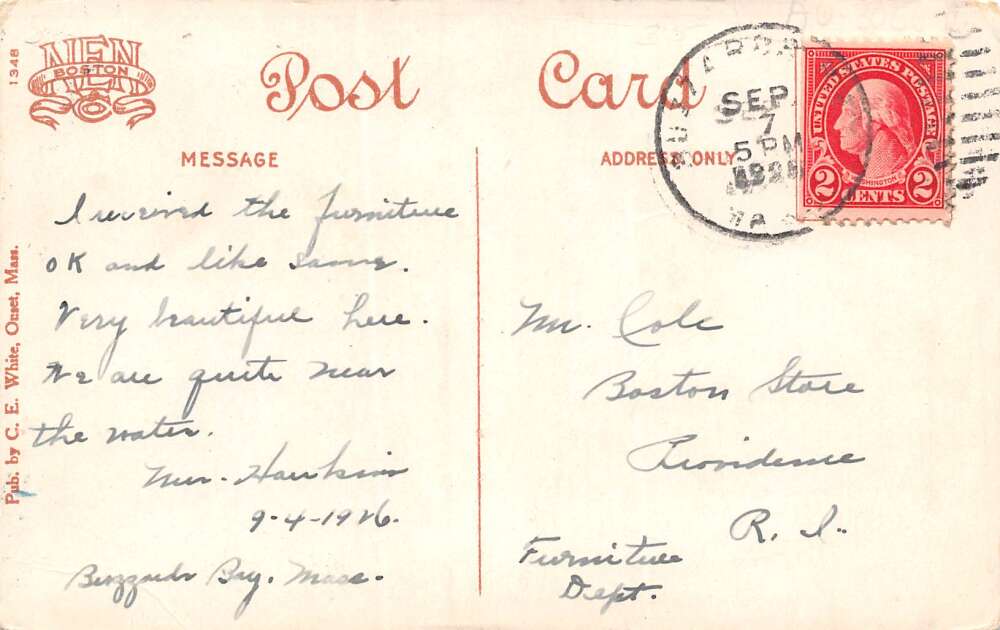 1348
NEN
BOSTON
Post Card
MESSAGE
ADDRESS ONLY
SEP
7
5 PM
UNITED STATES POSTAGE
WASHINGTON
2 CENTS 2
Pub. by C. E. White, Onset, Mass.
I received the furniture
OK and like same.
Very beautiful here.
We are quite near
the water.
Mrs. Hawkins
9-4-1926.
Buzzards Bay, Mass.
Mr. Cole
Boston Store
Providence
R. I.
Furniture
Dept.